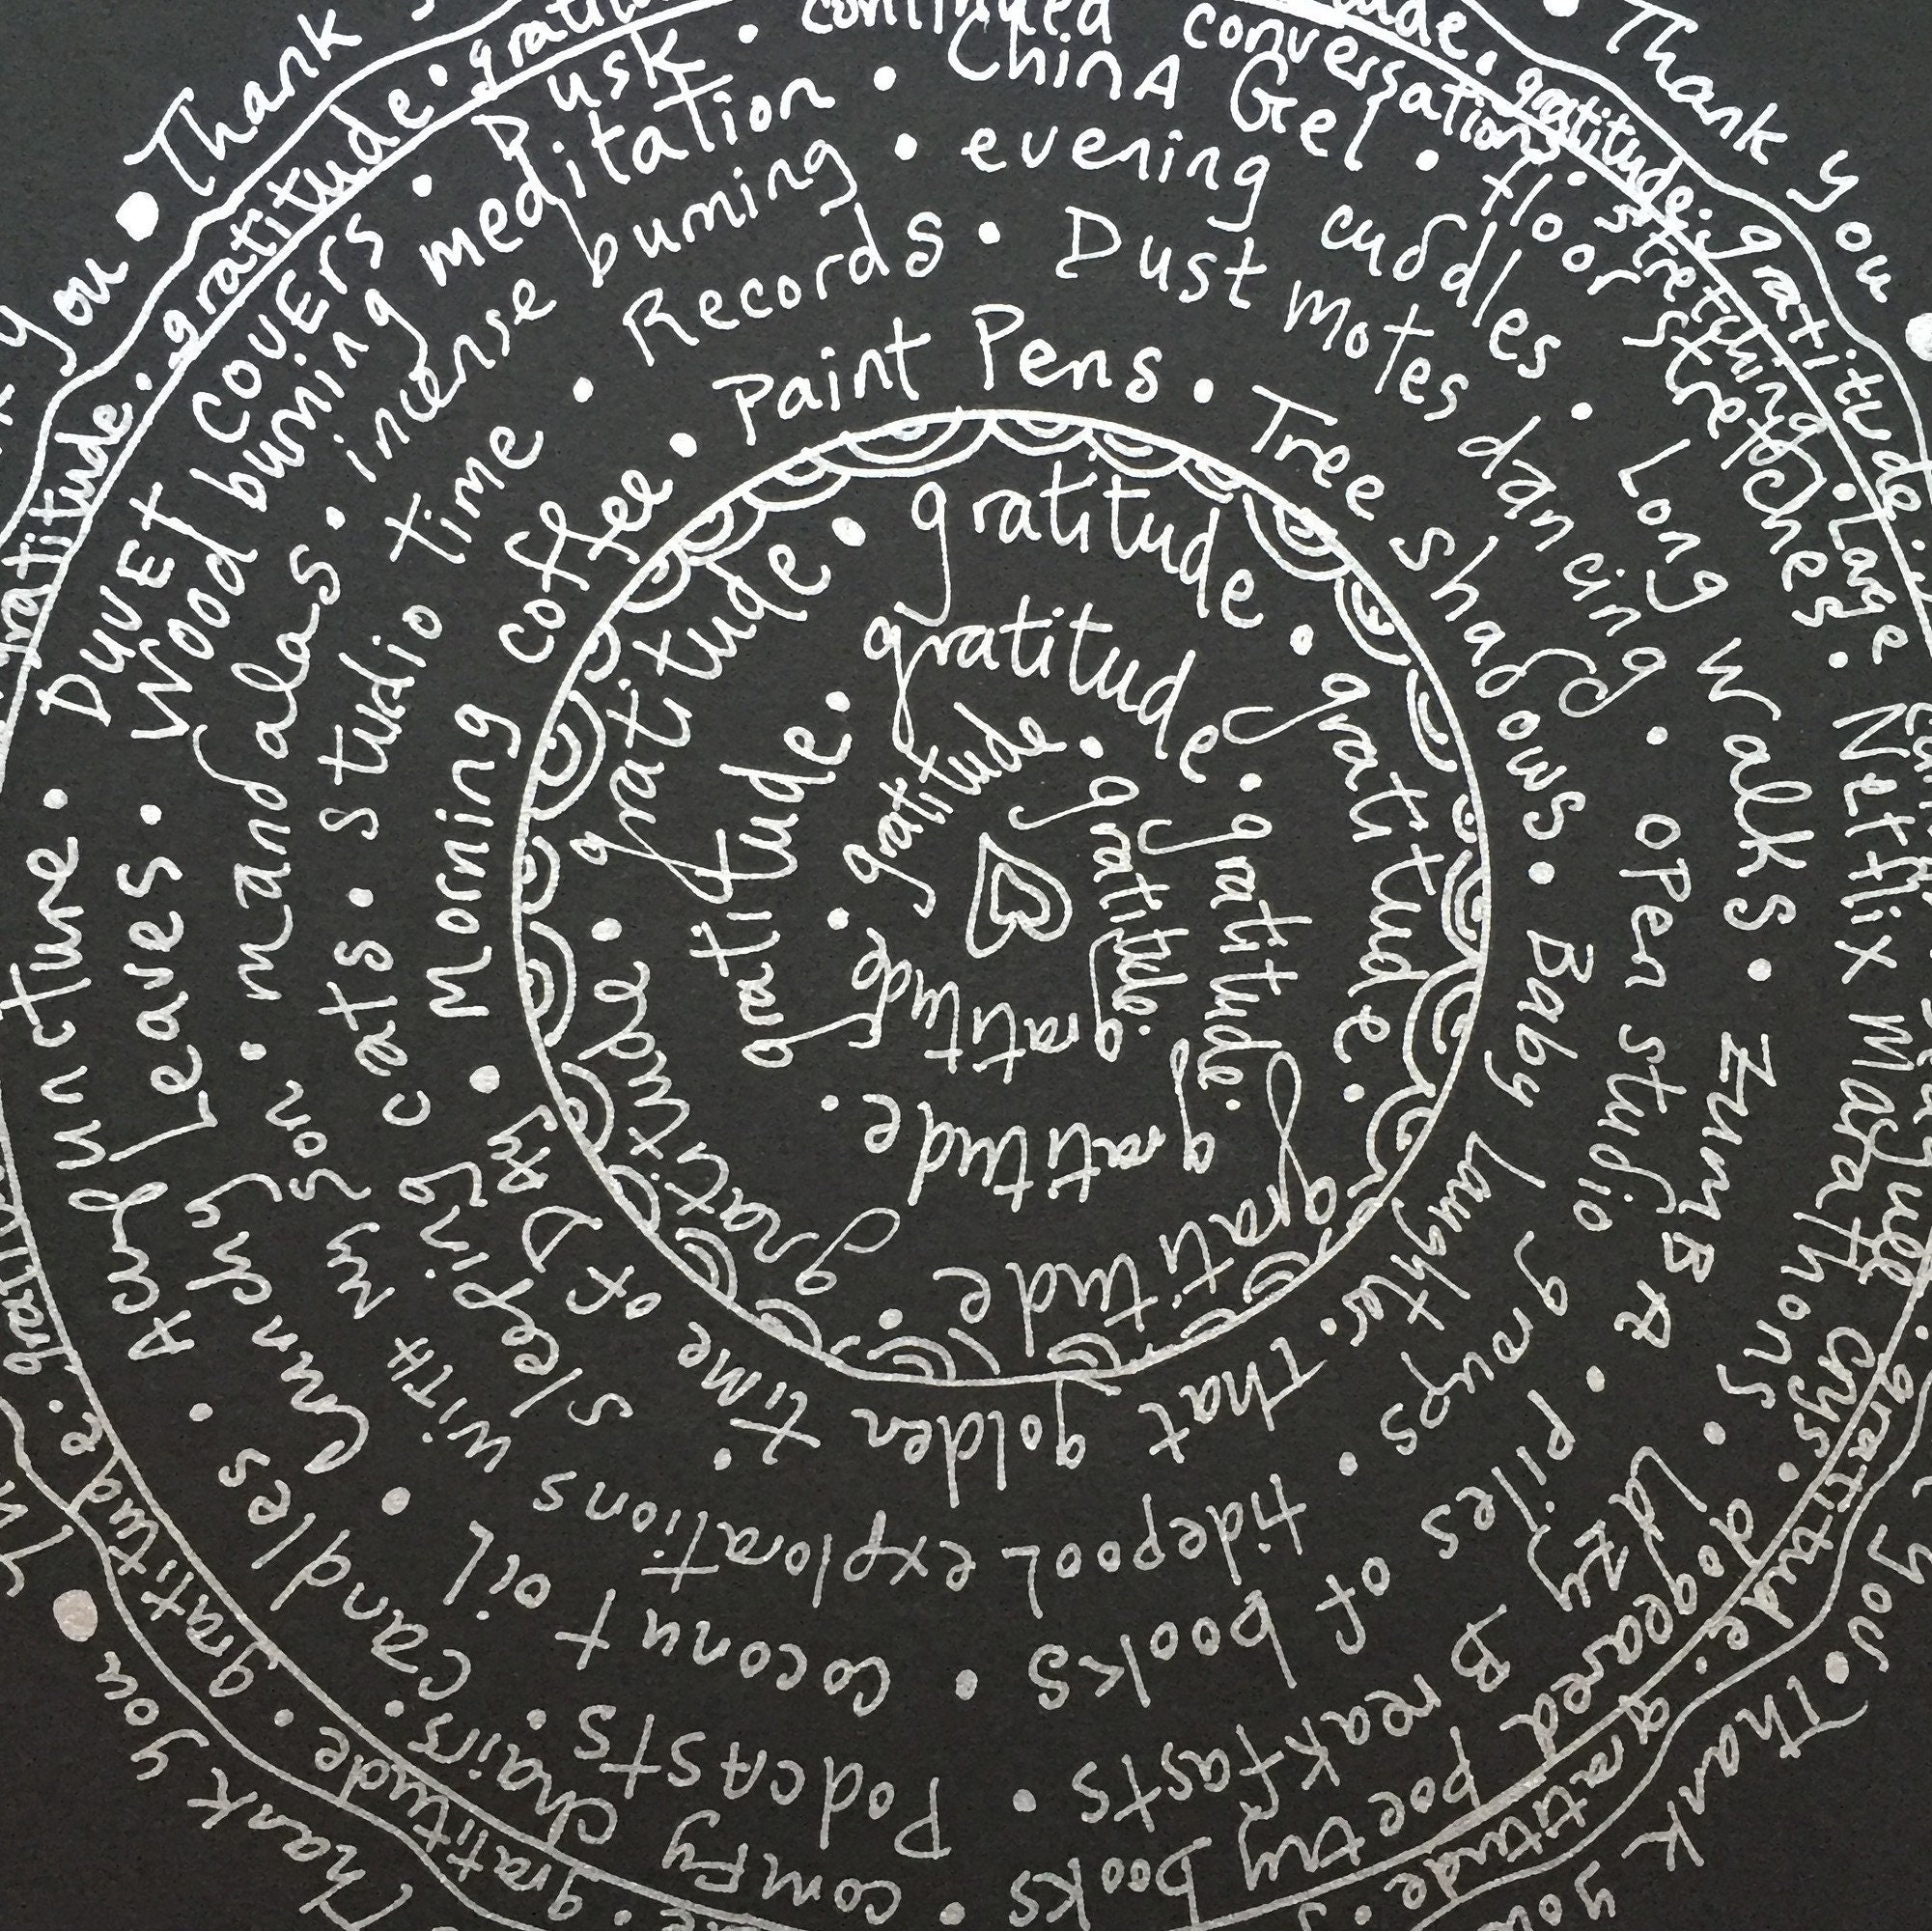 gratitude • gratitude • gratitude •
gratitude • gratitude • gratitude • gratitude •
gratitude • gratitude • gratitude • gratitude • gratitude •
Morning coffee • Paint Pens • Tree Shadows • Baby Laughter • That golden time of Day •
sleeping cats • studio time • Records • Dust motes dancing • open studio groups •
tidepool explorations with my son • mandalas • incense burning • evening cuddles • Long walks • ZumBA •
piles of books • coconut oil • Crunchy Leaves • Wood burning meditation • China Gel • floor stretches • Netflix Marathons •
Lazy Breakfasts • Podcasts • candles • Acupuncture • Duvet covers • Dusk • continued conversations • stretching • Large
dogeared poetry books • comfy chairs •
gratitude • gratitude • gratitude • gratitude • gratitude • gratitude • gratitude • gratitude • gratitude • gratitude
Thank you • Thank you • Thank you • Thank you